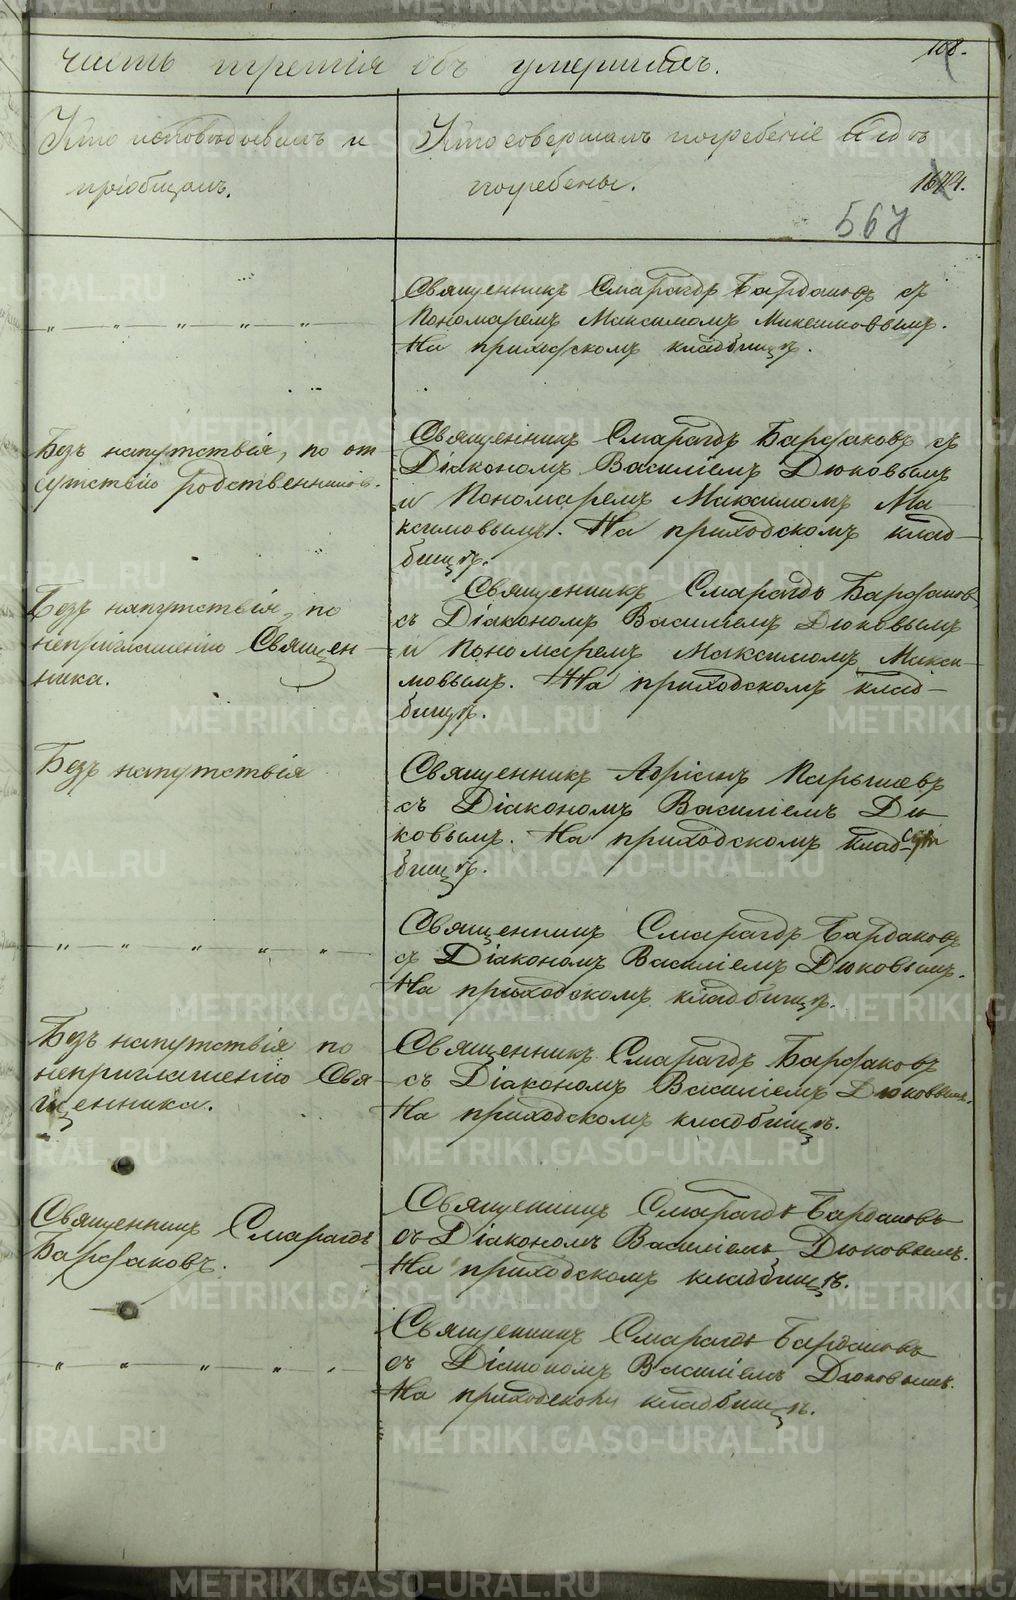 часть третія объ умершихъ.
108.
Кто исповѣдывалъ и
пріобщалъ.
Кто совершалъ погребеніе и гдѣ
погребены.
567
Священникъ Смарагдъ Бардаковъ съ
Пономаремъ Максимомъ Максимовымъ.
На приходскомъ кладбищѣ.
—„—„—„—„—„—
Безъ напутствія, по от
сутствію родственниковъ.
Священникъ Смарагдъ Бардаковъ съ
Діакономъ Василіемъ Дюковымъ
и Пономаремъ Максимомъ Ма-
ксимовымъ. На приходскомъ клад-
бищѣ.
Безъ напутствія, по
неприглашенію Священ-
ника.
Священникъ Смарагдъ Бардаковъ
съ Діакономъ Василіемъ Дюковымъ
и Пономаремъ Максимомъ Макси-
мовымъ. На приходскомъ клад-
бищѣ.
Безъ напутствія
Священникъ Адріанъ Парышевъ
съ Діакономъ Василіемъ Дю
ковымъ. На приходскомъ клад-
бищѣ.
—„—„—„—„—„—
Священникъ Смарагдъ Бардаковъ
съ Діакономъ Василіемъ Дюковымъ.
На приходскомъ кладбищѣ.
Безъ напутствія по
неприглашенію Свя-
щенника.
Священникъ Смарагдъ Бардаковъ
съ Діакономъ Василіемъ Дюковымъ.
На приходскомъ кладбищѣ.
Священникъ Смарагдъ
Бардаковъ.
Священникъ Смарагдъ Бардаковъ
съ Діакономъ Василіемъ Дюковымъ.
На приходскомъ кладбищѣ.
—„—„—„—„—„—
Священникъ Смарагдъ Бардаковъ
съ Діакономъ Василіемъ Дюковымъ.
На приходскомъ кладбищѣ.
METRIKI.GASO-URAL.RU